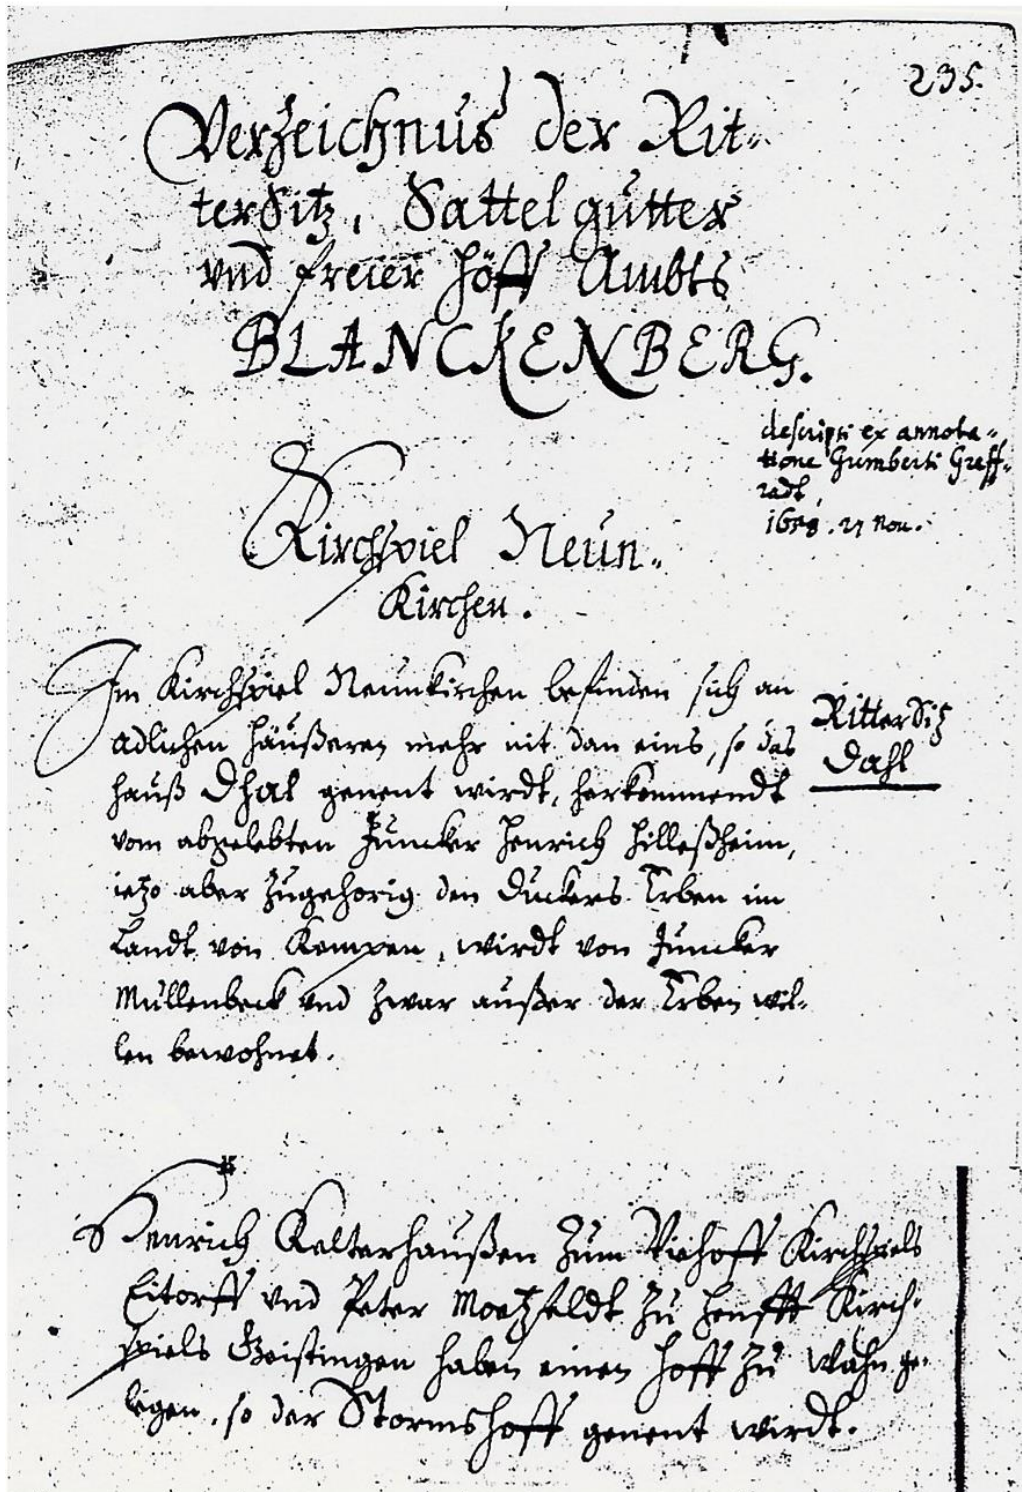 235.
Verzeichnus der Rit-
terSitz, Sattelgütter
vnd freier höff Ambts
BLANCKENBERG.
descripti ex annota-
tione Gumberti Greff-
radt,
Nou.
Kirchspiel Neun-
Kirchen.
Im Kirchspiel Neunkirchen befinden sich an
adlichen häußeren mehr nit dan eins, so das
hauß Dhal genent wirdt, herkommendt
vom abgelebten Juncker Henrich Hilleßheim,
ietzo aber zugehorig den Dückers Erben im
Landt von Kempen, wirdt von Juncker
Müllenbeck vnd zwar außer der Erben wil-
len bewohnet.
RitterSitz
Dahl
Henrich Kelterhaußen zum Viehoff Kirchspiels
Eitorff vnd Peter Mortzfeldt zu Henfft Kirch-
spiels Geistingen haben einen hoff zu Wahn ge-
legen, so der Stormshoff genent wirdt.